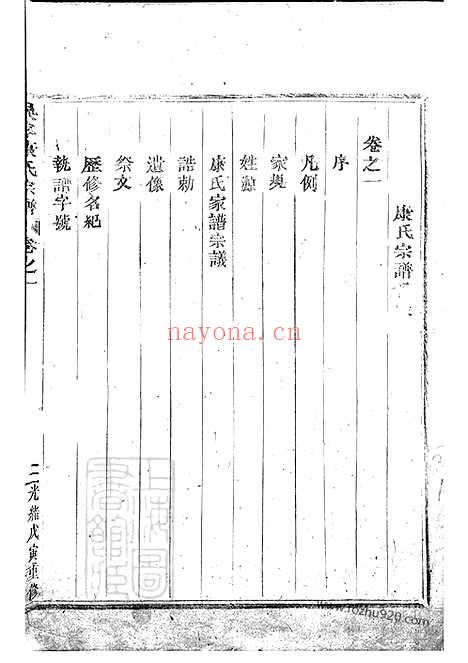 康氏宗譜
卷之一
序
凡例
家規
姓源
康氏家譜宗議
誥勅
遺像
祭文
歷修名紀
執譜字號
康氏宗譜 卷之一
二 光緒戊寅重修
nayona.cn
www.fozhu920.com